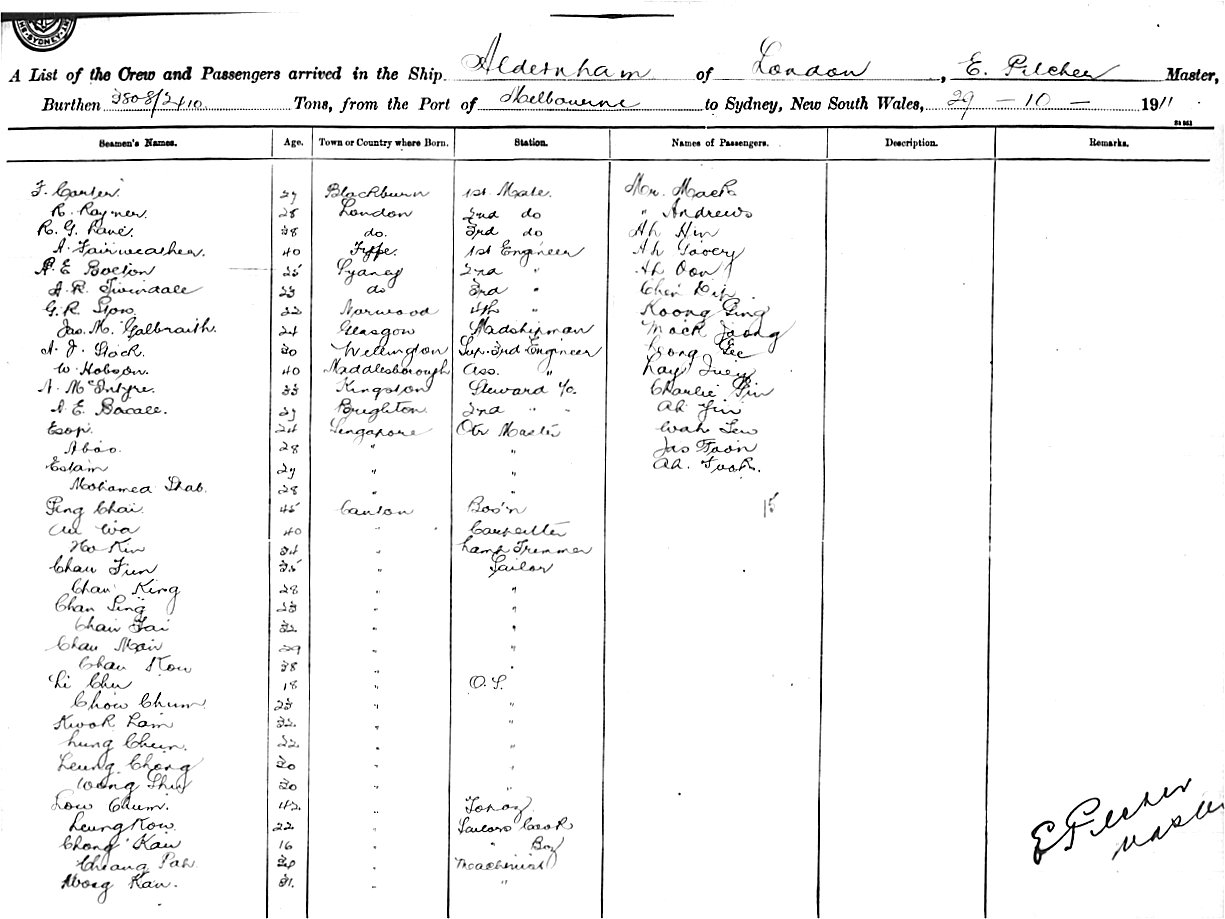 SYDNEY
A List of the Crew and Passengers arrived in the Ship Aldernham of London, E. Pilcher Master,
Burthen 3808/2410 Tons, from the Port of Melbourne to Sydney, New South Wales, 29 - 10 - 1911
Seamen's Names. Age. Town or Country where Born. Station. Names of Passengers. Description. Remarks.
F. Carter. 27 Blackburn 1st Mate. Mr. Mack
R. Rayner. 28 London 2nd do " Andrews
R. G. 38 do. 3rd do Ah Hin
A. Fairweather. 40 Fyffe. 1st Engineer Ah
A. E. Bolton 25 Sydney 2nd " Ah Oon
A. R. Twindale 23 do 3rd " Chin
G. R. Stow. 22 Norwood 4th " Koong Ging
Jas. M. Galbraith. 24 Glasgow Madshipman Mack
A. J. Stock. 30 Wellington Sup. 3rd Engineer Gee
W. Hobson. 40 Maddlesborough Ass. " Kay
A. McIntyre. 33 Kingston Steward Yo. Charlie Gin
A. E. Bacall. 27 Brighton 2nd " " Ah Yin
Esop. 24 Singapore Qtr Master Wah
Aboo. 28 " " Jas
Eslam 27 " " Ah. Fook.
Mohamed Shab. 28 " "
Ping Chai. 45 Canton Bos'n 15
Au Wa 40 " Carpenter
Ho Kin 34 " Lamp Tremmer
Chau Fun 35 " Sailor
Chau King 28 " "
Chan Sing 23 " "
Chau Tai 32 " "
Chau Moiv 29 " "
Chau Kow 38 " "
Li Chu 18 " O. S.
Chow Chum. 23 " "
Kwok Lam 32 " "
Lung Chun. 22 " "
Leung Chong 30 " "
Wong Shu 30 " "
Low Chum. 42 "
Leung Kow. 22 " Sailors Cook
Chong Kau 16 " " Boy
Cheang Pak 30 " Machinist
Wong Kau. 31 " "
E Pilcher
Master